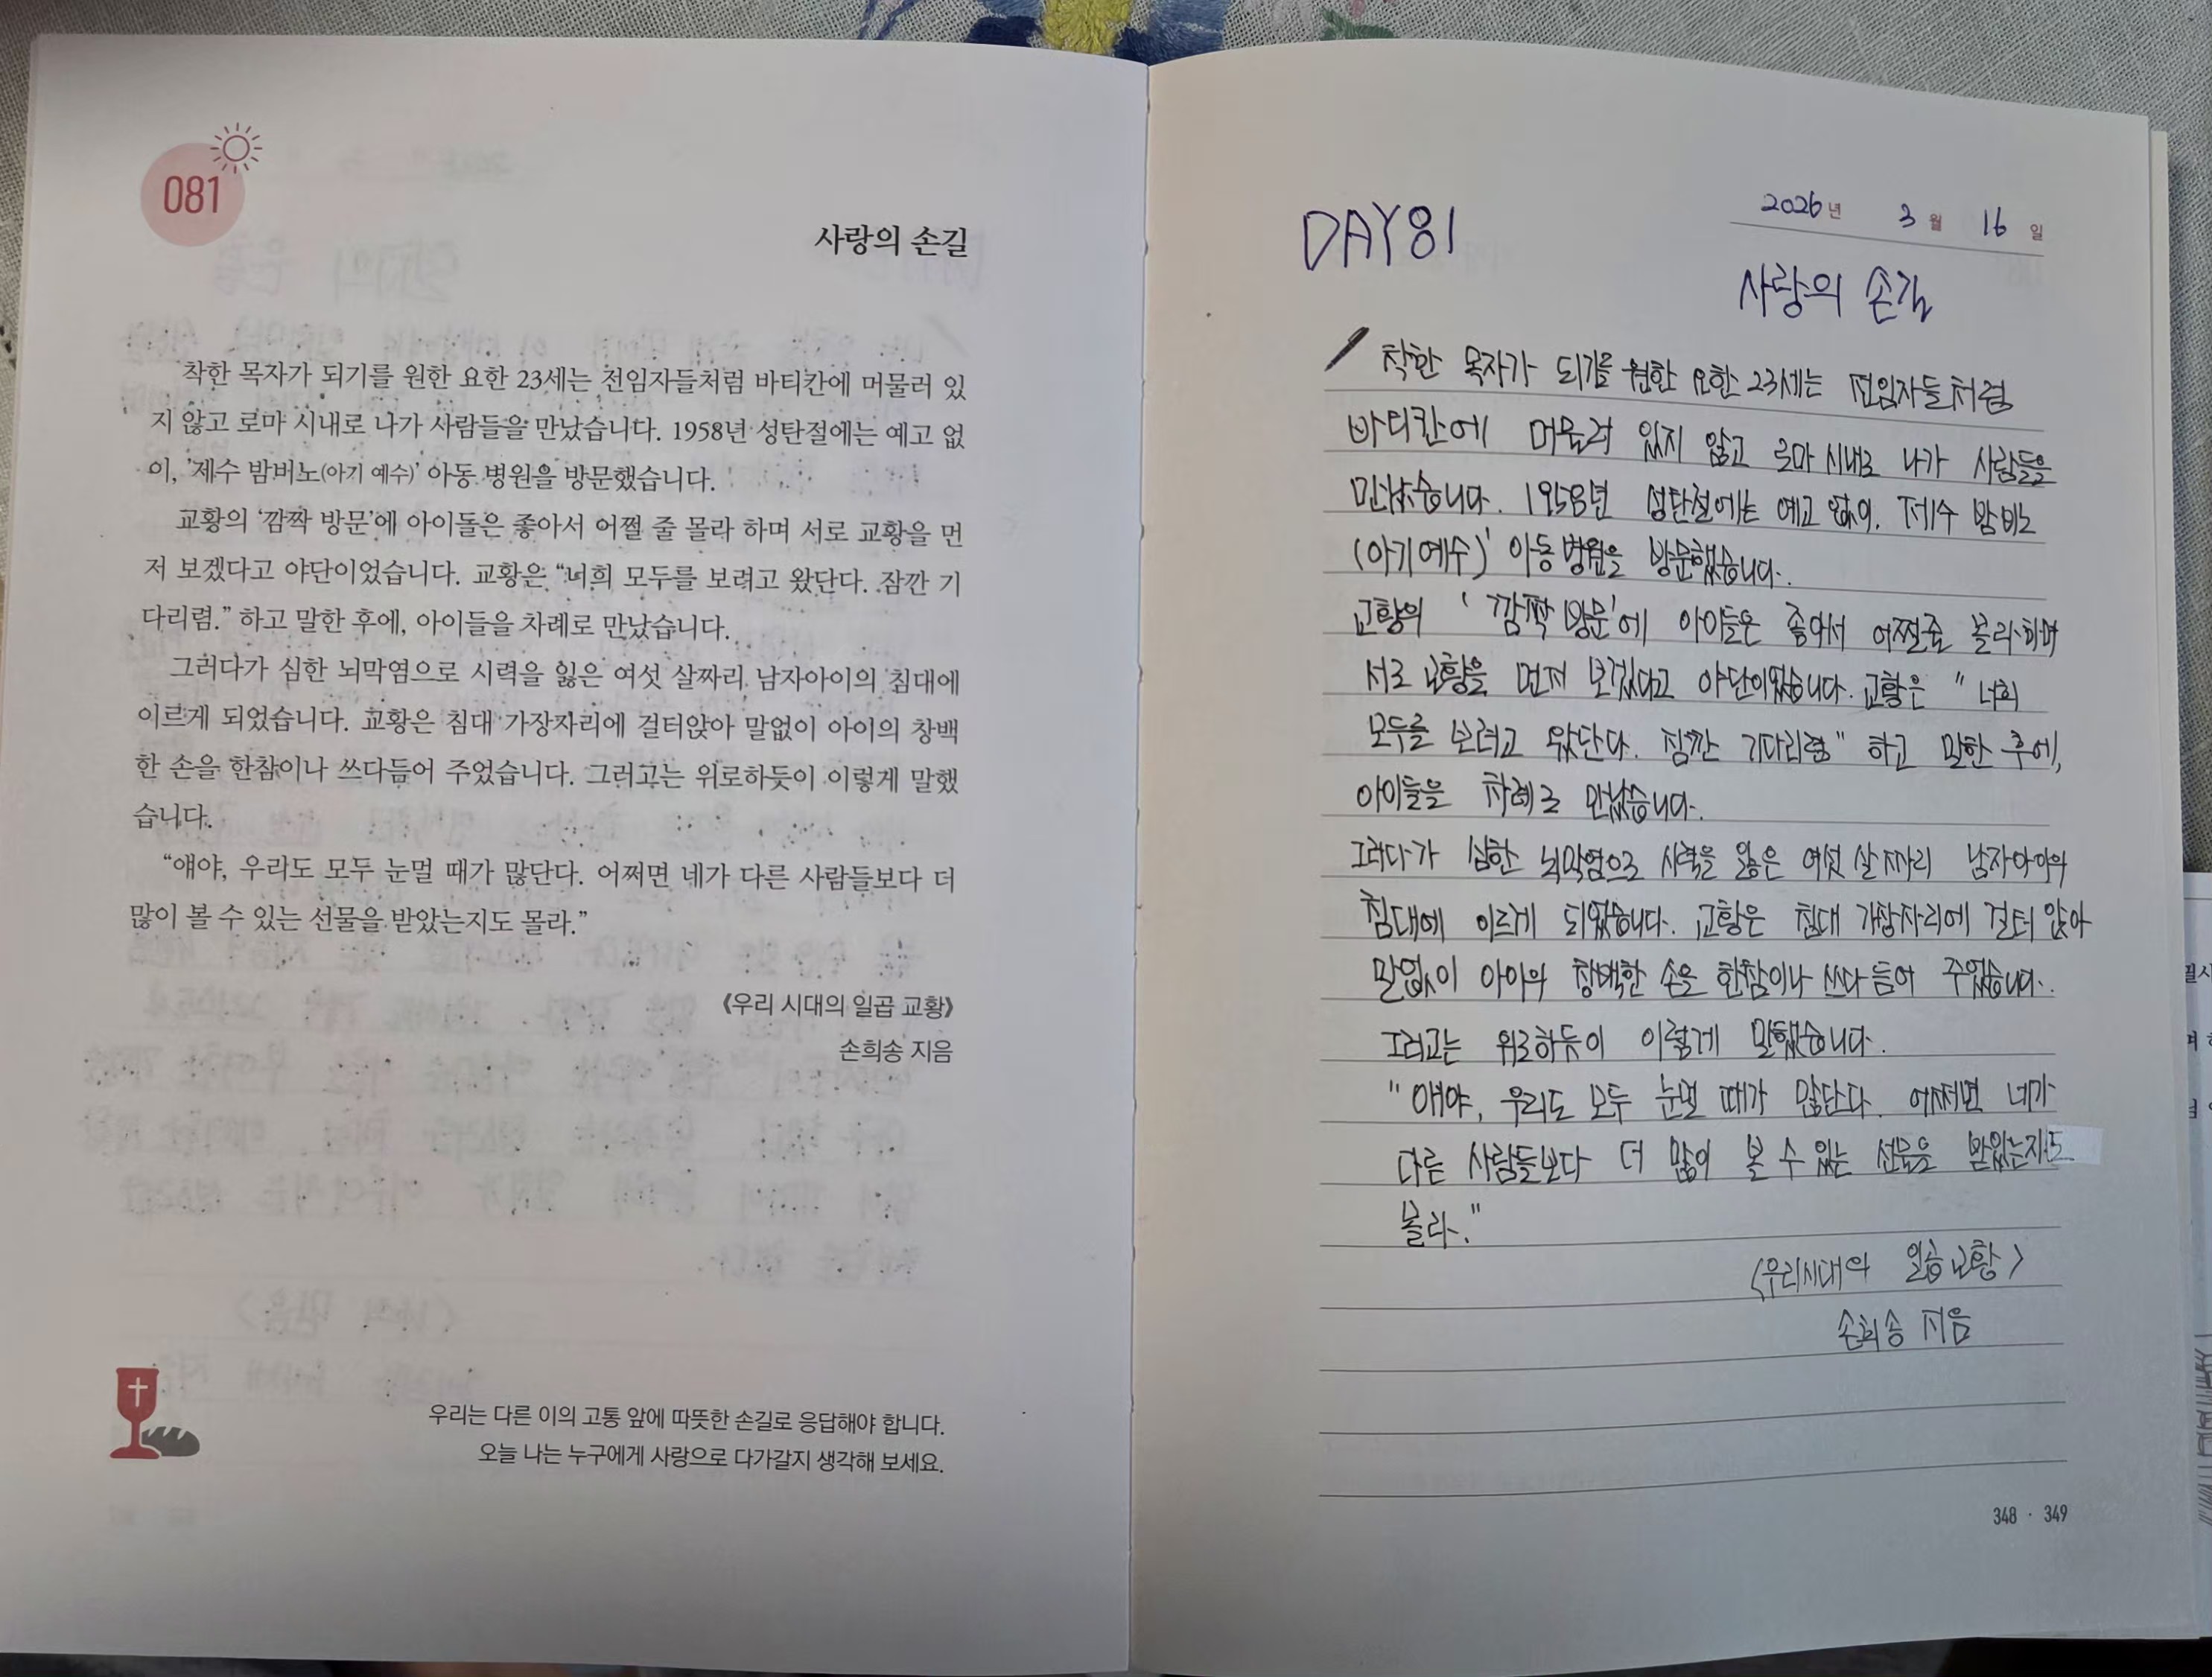 081
사랑의 손길
착한 목자가 되기를 원한 요한 23세는 전임자들처럼 바티칸에 머물러 있
지 않고 로마 시내로 나가 사람들을 만났습니다. 1958년 성탄절에는 예고 없
이, '제수 밤버노(아기 예수)' 아동 병원을 방문했습니다.
교황의 '깜짝 방문'에 아이들은 좋아서 어쩔 줄 몰라 하며 서로 교황을 먼
저 보겠다고 야단이었습니다. 교황은 “너희 모두를 보려고 왔단다. 잠깐 기
다리렴.” 하고 말한 후에, 아이들을 차례로 만났습니다.
그러다가 심한 뇌막염으로 시력을 잃은 여섯 살짜리 남자아이의 침대에
이르게 되었습니다. 교황은 침대 가장자리에 걸터앉아 말없이 아이의 창백
한 손을 한참이나 쓰다듬어 주었습니다. 그러고는 위로하듯이 이렇게 말했
습니다.
“얘야, 우리도 모두 눈멀 때가 많단다. 어쩌면 네가 다른 사람들보다 더
많이 볼 수 있는 선물을 받았는지도 몰라.”
《우리 시대의 일곱 교황》
손희송 지음
우리는 다른 이의 고통 앞에 따뜻한 손길로 응답해야 합니다.
오늘 나는 누구에게 사랑으로 다가갈지 생각해 보세요.
DAY81
2026년 3월 16일
사랑의 손길
착한 목자가 되기를 원한 요한 23세는 전임자들처럼
바티칸에 머물러 있지 않고 로마 시내로 나가 사람들을
만났습니다. 1958년 성탄절에는 예고 없이. 제수 밤비노
(아기예수)' 아동병원을 방문했습니다.
교황의 '깜짝 방문'에 아이들은 좋아서 어쩔줄 몰라하며
서로 교황을 먼저 보겠다고 야단이었습니다. 교황은 " 너희
모두를 보려고 왔단다. 잠깐 기다리렴" 하고 말한 후에,
아이들을 차례로 만났습니다.
그러다가 심한 뇌막염으로 시력을 잃은 여섯 살짜리 남자아이의
침대에 이르게 되었습니다. 교황은 침대 가장자리에 걸터 앉아
말없이 아이의 창백한 손을 한참이나 쓰다듬어 주었습니다.
그러고는 위로하듯이 이렇게 말했습니다.
" 얘야, 우리도 모두 눈멀 때가 많단다. 어쩌면 네가
다른 사람들보다 더 많이 볼 수 있는 선물을 받았는지도
몰라."
<우리시대의 일곱교황>
손희송 지음
348 · 349